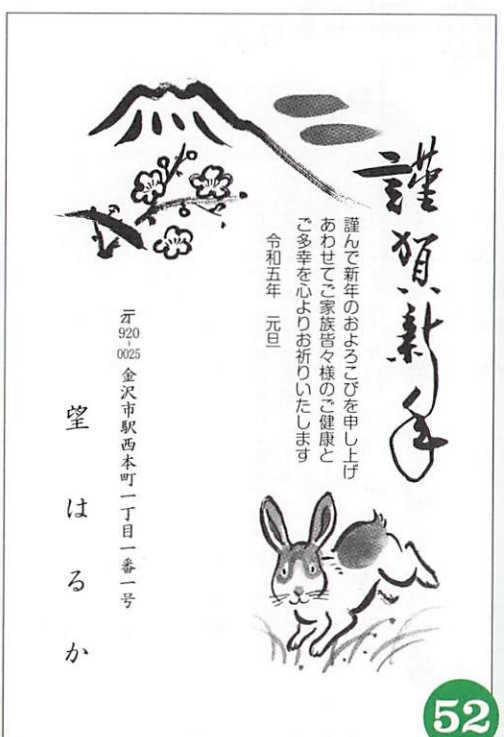 謹賀新年
謹んで新年のおよろこびを申し上げ
あわせてご家族皆々様のご健康と
ご多幸を心よりお祈りいたします
令和五年　元旦
〒920-0025 金沢市駅西本町一丁目一番一号
望はるか
52